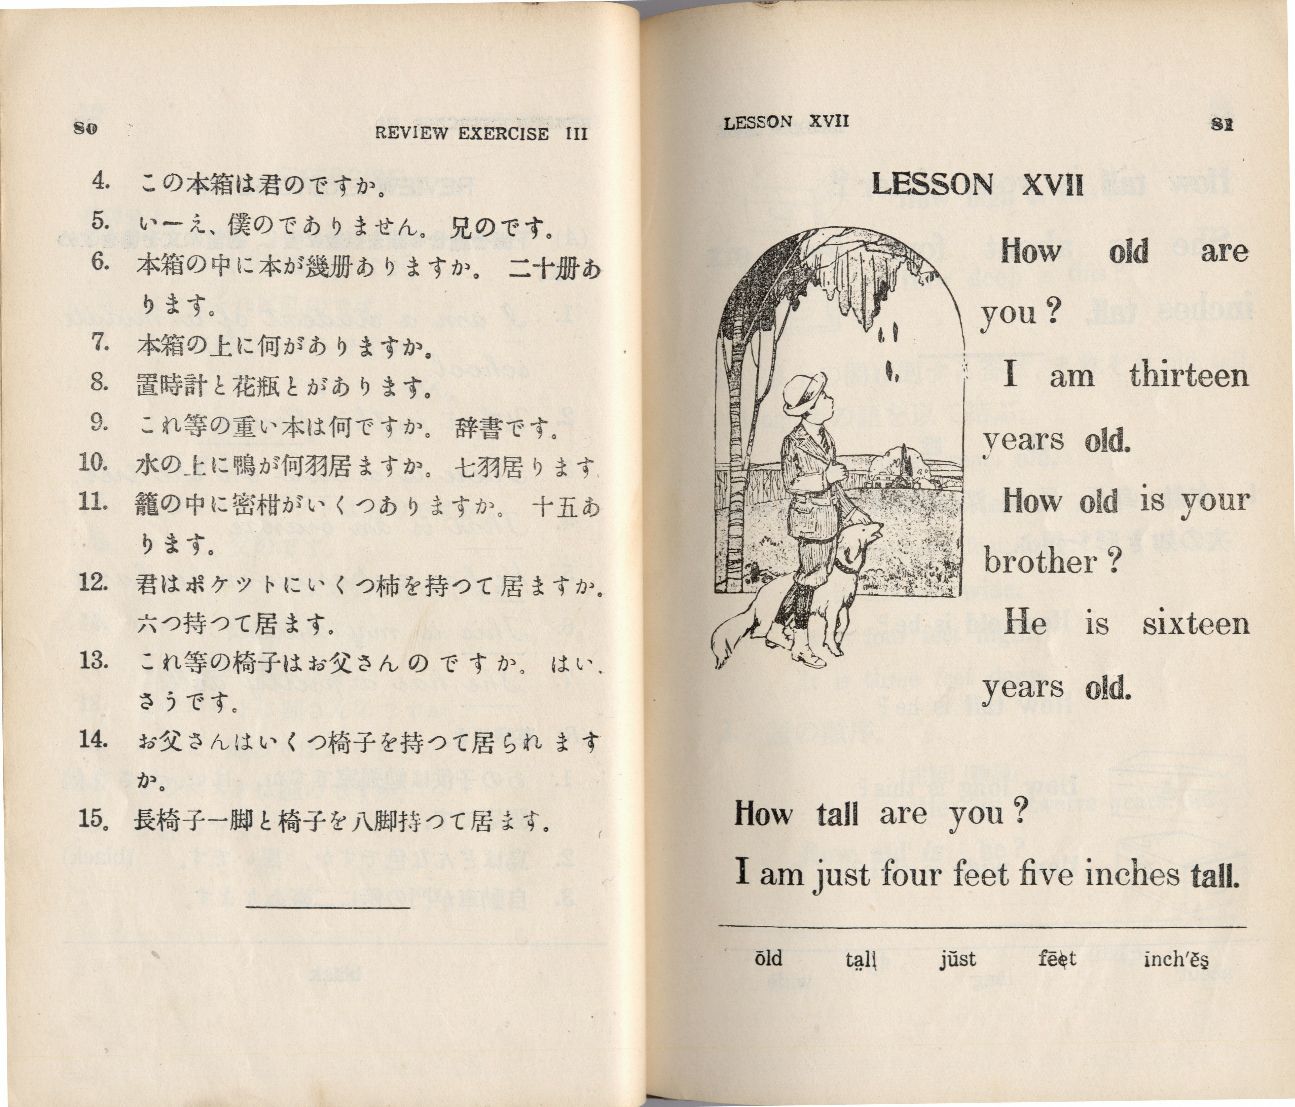 80
REVIEW EXERCISE III
4. この本箱は君のですか。
5. いーえ、僕のでありません。 兄のです。
6. 本箱の中に本が幾册ありますか。 二十册あ
ります。
7. 本箱の上に何がありますか。
8. 置時計と花瓶とがあります。
9. これ等の重い本は何ですか。 辞書です。
10. 水の上に鴨が何羽居ますか。 七羽居ります
11. 籠の中に密柑がいくつありますか。 十五あ
ります。
12. 君はポケツトにいくつ柿を持つて居ますか。
六つ持つて居ます。
13. これ等の椅子はお父さんのですか。 はい、
さうです。
14. お父さんはいくつ椅子を持つて居られます
か。
15. 長椅子一脚と椅子を八脚持つて居ます。
LESSON XVII
81
LESSON XVII
How old are
you?
I am thirteen
years old.
How old is your
brother?
He is sixteen
years old.
How tall are you?
I am just four feet five inches tall.
ōld tạll jŭst fēet inch′ĕş